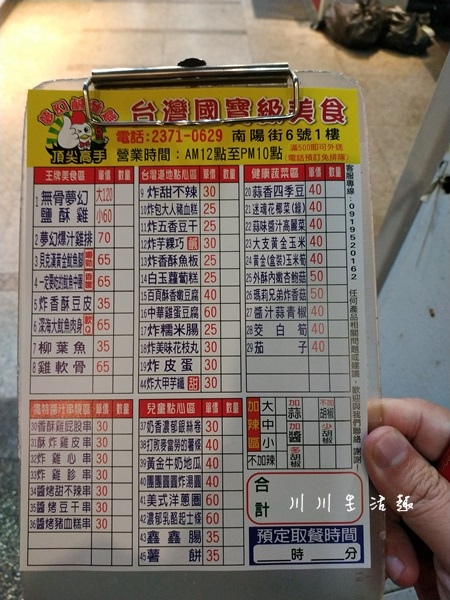 台灣國寶級美食
頂尖高手
電話:2371-0629 南陽街6號1樓
營業時間:AM12點至PM10點
滿500即可外送
(電話預訂免排隊)
王牌美食區 單價 數量
1 無骨夢幻鹽酥雞 大120 小60
2 夢幻爆汁雞排 70
65
65
5 炸香酥豆皮 35
6 深海大魷魚肉身 65
7 柳葉魚 35
8 雞軟骨 65
台灣道地點心區 單價 數量
9 炸甜不辣 30
10 炸包大人豬血糕 25
11 炸五香百干 25
12 炸芋粿巧 30
13 炸香酥魚板 25
14 白玉蘿蔔糕 25
15 百頁酥香嫩豆腐 40
16 中華雞蛋豆腐 60
17 炸糯米腸 25
18 炸美味花枝丸 30
19 炸皮蛋 30
健康蔬菜區 單價 數量
20 蒜香四季豆 40
21 迷魂花椰菜(綠) 40
22 蒜味醬汁高麗菜 40
23 大支黃金玉米 40
24 黃金(盒裝)玉米筍 40
25 外酥內嫩杏鮑菇 50
26 瑪莉兄弟炸香菇 50
27 醬汁蒜青椒 40
28 筊白筍 40
29 茄子 40
客服專線:0919520162 任何產品相關問題或建議,歡迎與我們聯絡 謝謝
獨特醬汁串燒區 單價 數量
30 香酥雞屁股串 30
31 酥炸雞皮串 30
32 炸雞心串 30
33 炸雞胗串 30
34 醬烤甜不辣串 30
35 醬烤豆干串 30
36 醬烤豬血糕串 30
兒童點心區 單價 數量
37 奶香濃郁銀絲卷 30
38 打敗麥當勞的薯條 40
39 黃金牛奶地瓜 40
40 團團圓圓炸湯圓 40
41 美式洋蔥圈 60
42 濃郁乳酪起士條 60
43 鑫鑫腸 35
45 薯餅 35
加辣區
大 中 小 不加辣
加蒜
加醬
多胡椒
不加胡椒
少胡椒
合計
預定取餐時間
時 分
川川生活趣